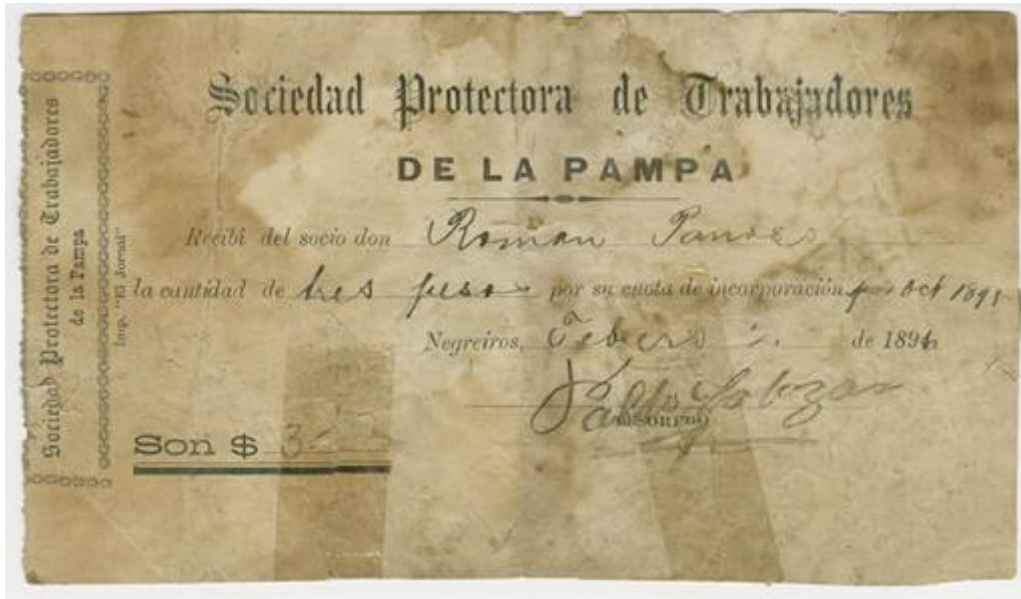 Sociedad Protectora de Trabajadores
de la Pampa
Imp. "El Jornal"
Sociedad Protectora de Trabajadores
DE LA PAMPA
Recibí del socio don Roman
la cantidad de tres pesos por su cuota de incorporación Oct 1891
Negreiros, Febero de 189
Pablo
TESORERO
Son $ 3